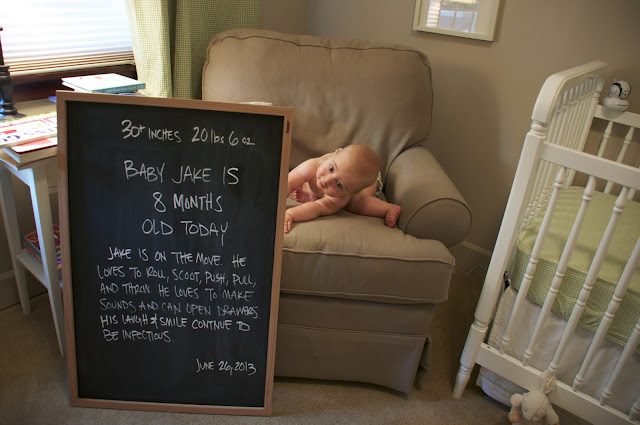 30+ INCHES 20 lbs 6 oz
BABY JAKE IS
8 MONTHS
OLD TODAY
JAKE IS ON THE MOVE. HE
LOVES TO ROLL, SCOOT, PUSH, PULL,
AND THROW. HE LOVES TO MAKE
SOUNDS AND CAN OPEN DRAWERS.
HIS LAUGH & SMILE CONTINUE TO
BE INFECTIOUS.
JUNE 26, 2013